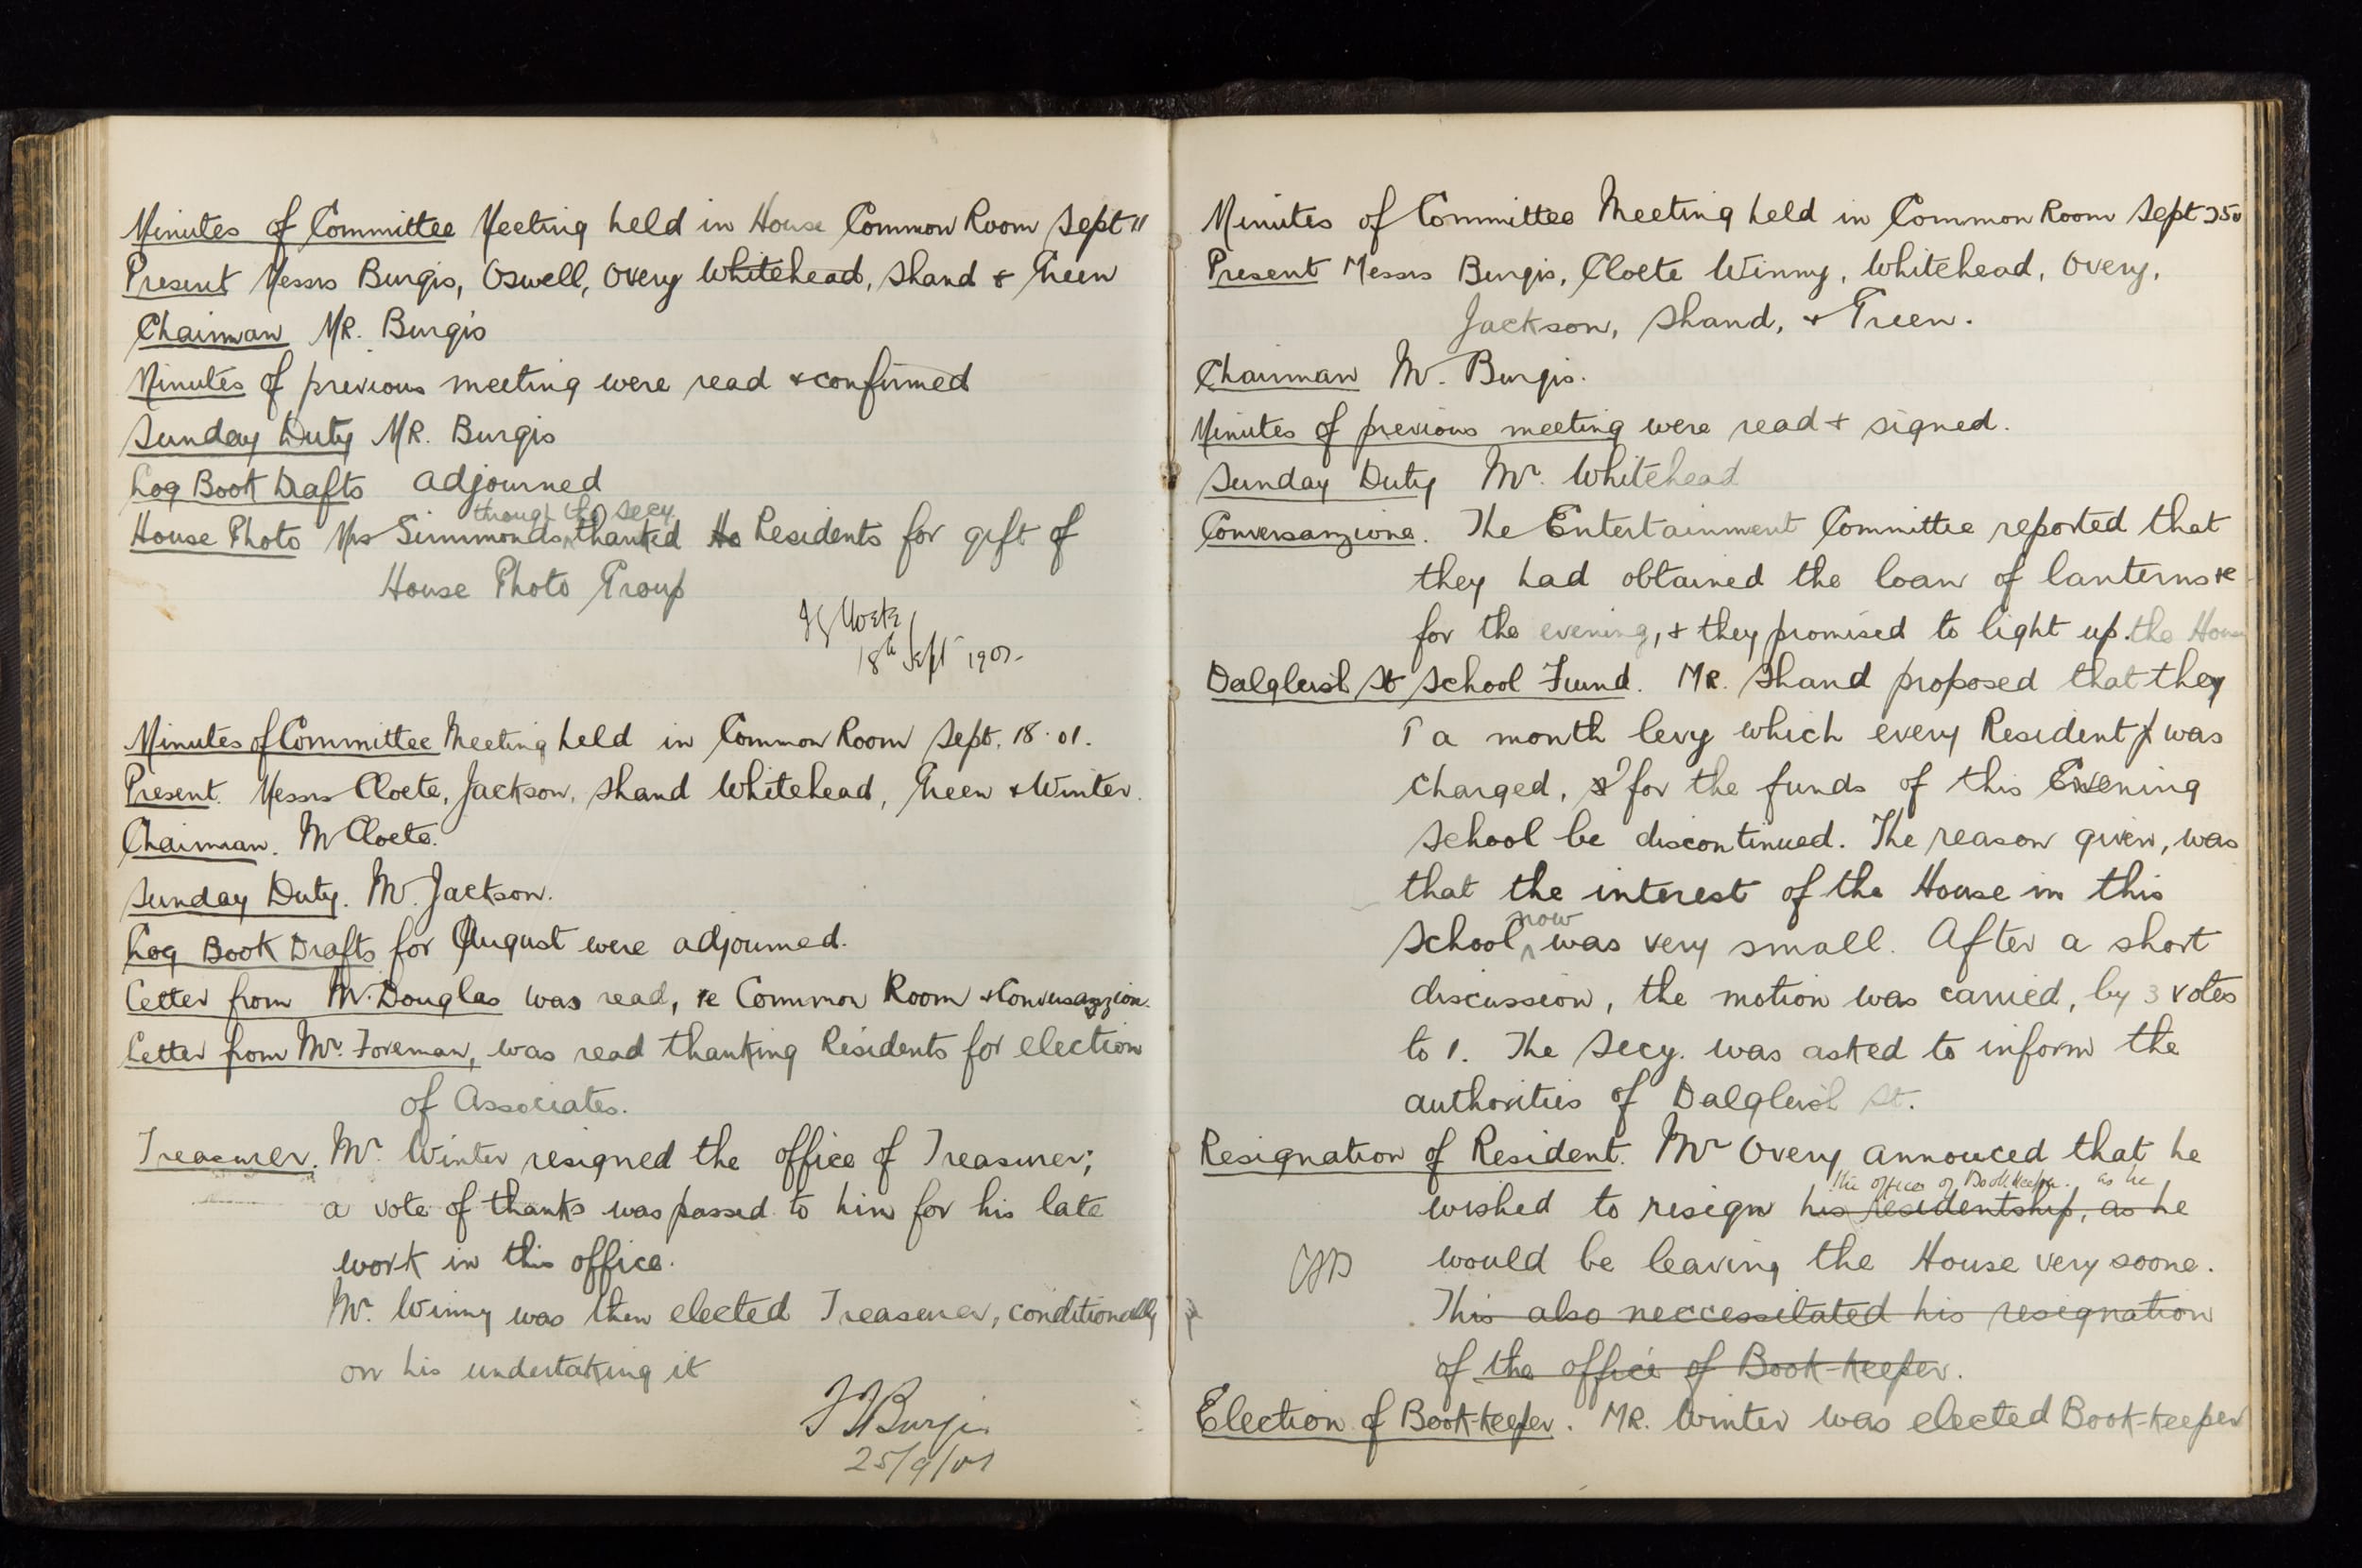 Minutes of Committee Meeting held in House Common Room Sept 11
Present Messrs Burgis, Oswell, Overy Whitehead, Shand & Green
Chairman MR. Burgis
Minutes of previous meeting were read & confirmed
Sunday Duty MR. Burgis
Log Book Drafts adjourned
through the Secy.
House Photo Mrs Simmonds thanked the Residents for gift of
House Photo Group
18th Sept 1901.
Minutes of Committee Meeting held in Common Room Sept. 18.01.
Present. Messrs Cloete, Jackson, Shand Whitehead, Green & Winter.
Chairman. Mr Cloete.
Sunday Duty. Mr. Jackson.
Log Book Drafts for August were adjourned.
Letter from Mr. Douglas was read, re Common Room & Conversazione.
Letter from Mr. Foreman, was read thanking Residents for election
of Associates.
Treasurer. Mr. Winter resigned the office of Treasurer;
a vote of thanks was passed to him for his late
work in this office.
Mr. Winny was then elected Treasurer, conditionally
on his undertaking it
Burgis
25/9/01
Minutes of Committee Meeting held in Common Room Sept 25
Present Messrs Burgis, Cloete Winny, Whitehead, Overy,
Jackson, Shand, & Green.
Chairman Mr. Burgis.
Minutes of previous meeting were read & signed.
Sunday Duty Mr. Whitehead
Conversazione. The Entertainment Committee reported that
they had obtained the loan of lanterns &c
for the evening, & they promised to light up the House
Dalgleish St School Fund. MR. Shand proposed that they
a month levy which every Resident was
charged, for the funds of this Evening
School be discontinued. The reason given, was
that the interest of the House in this
now
School was very small. After a short
discussion, the motion was carried, by 3 votes
to 1. The Secy. was asked to inform the
authorities of Dalgleish St.
Resignation of Resident. Mr Overy annouced that he
the office of Book-keeper. as he
wished to resign his residentship, as he
would be leaving the House very soone.
This also neccessitated his resignation
of the office of Book-keeper.
Election of Book-keeper. MR. Winter was elected Book-keeper